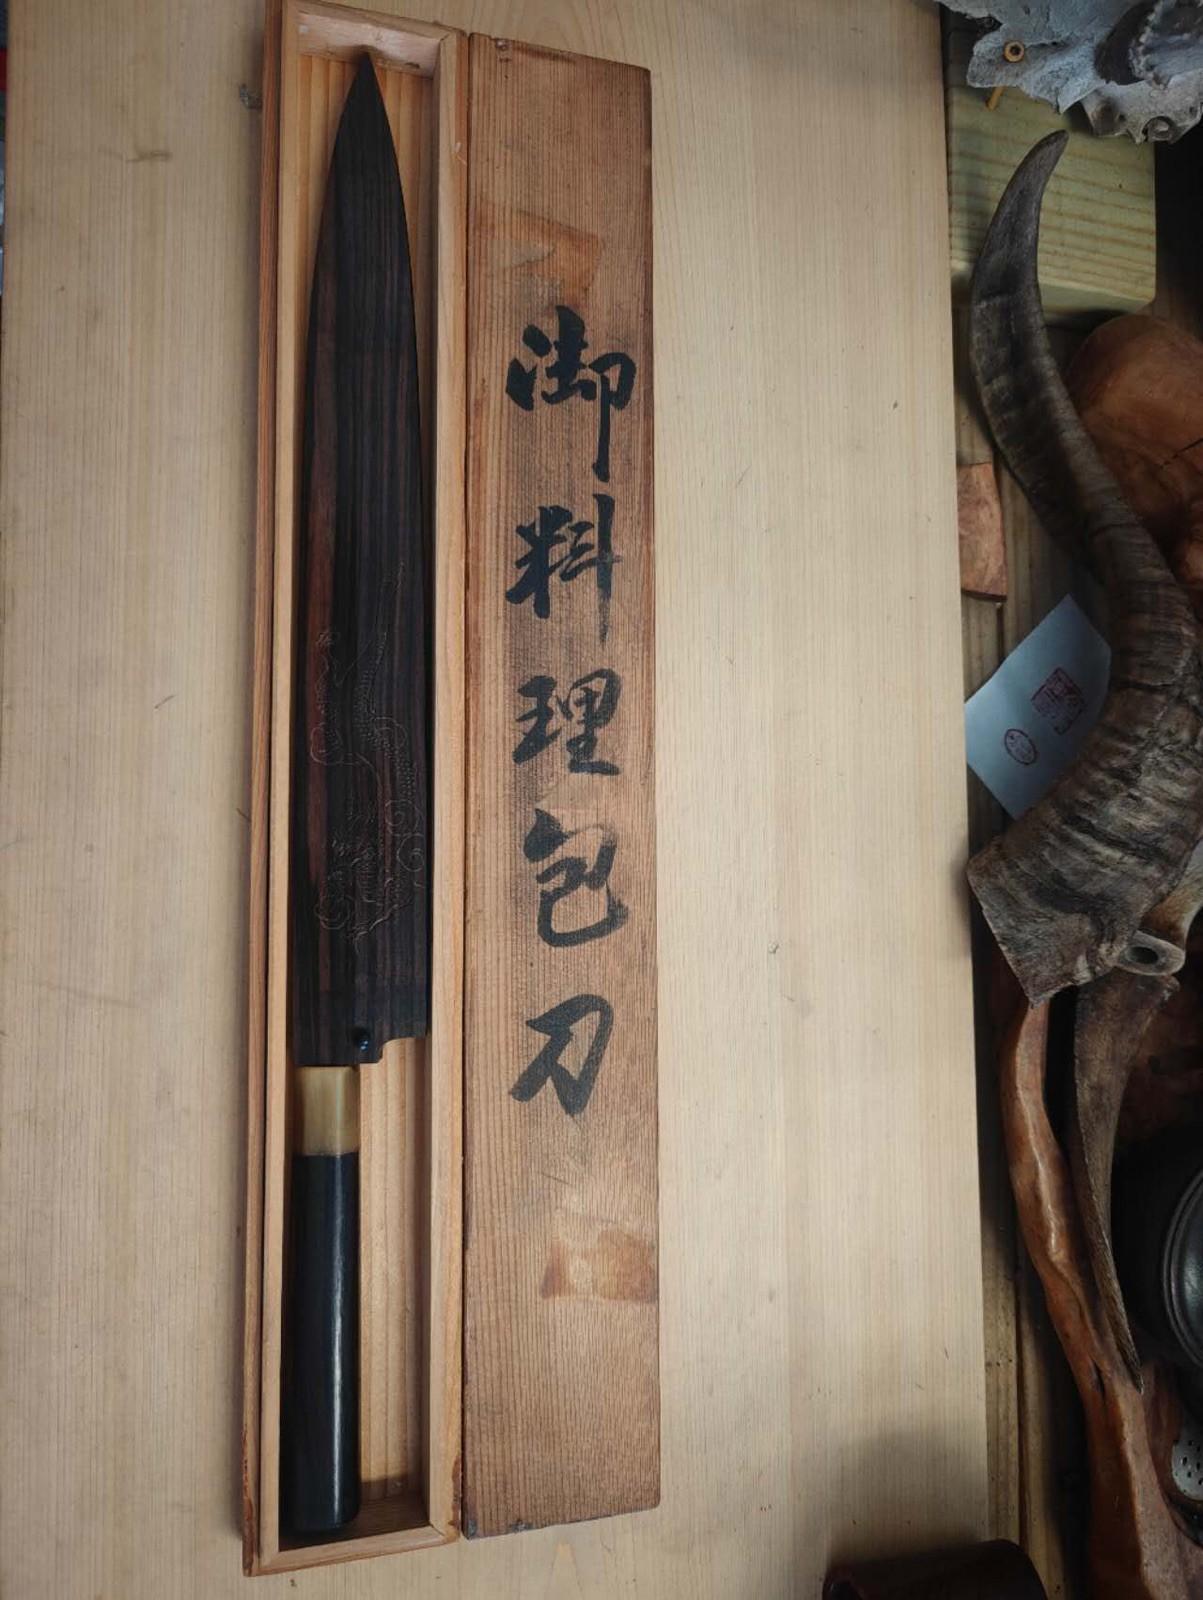 御料理包刀